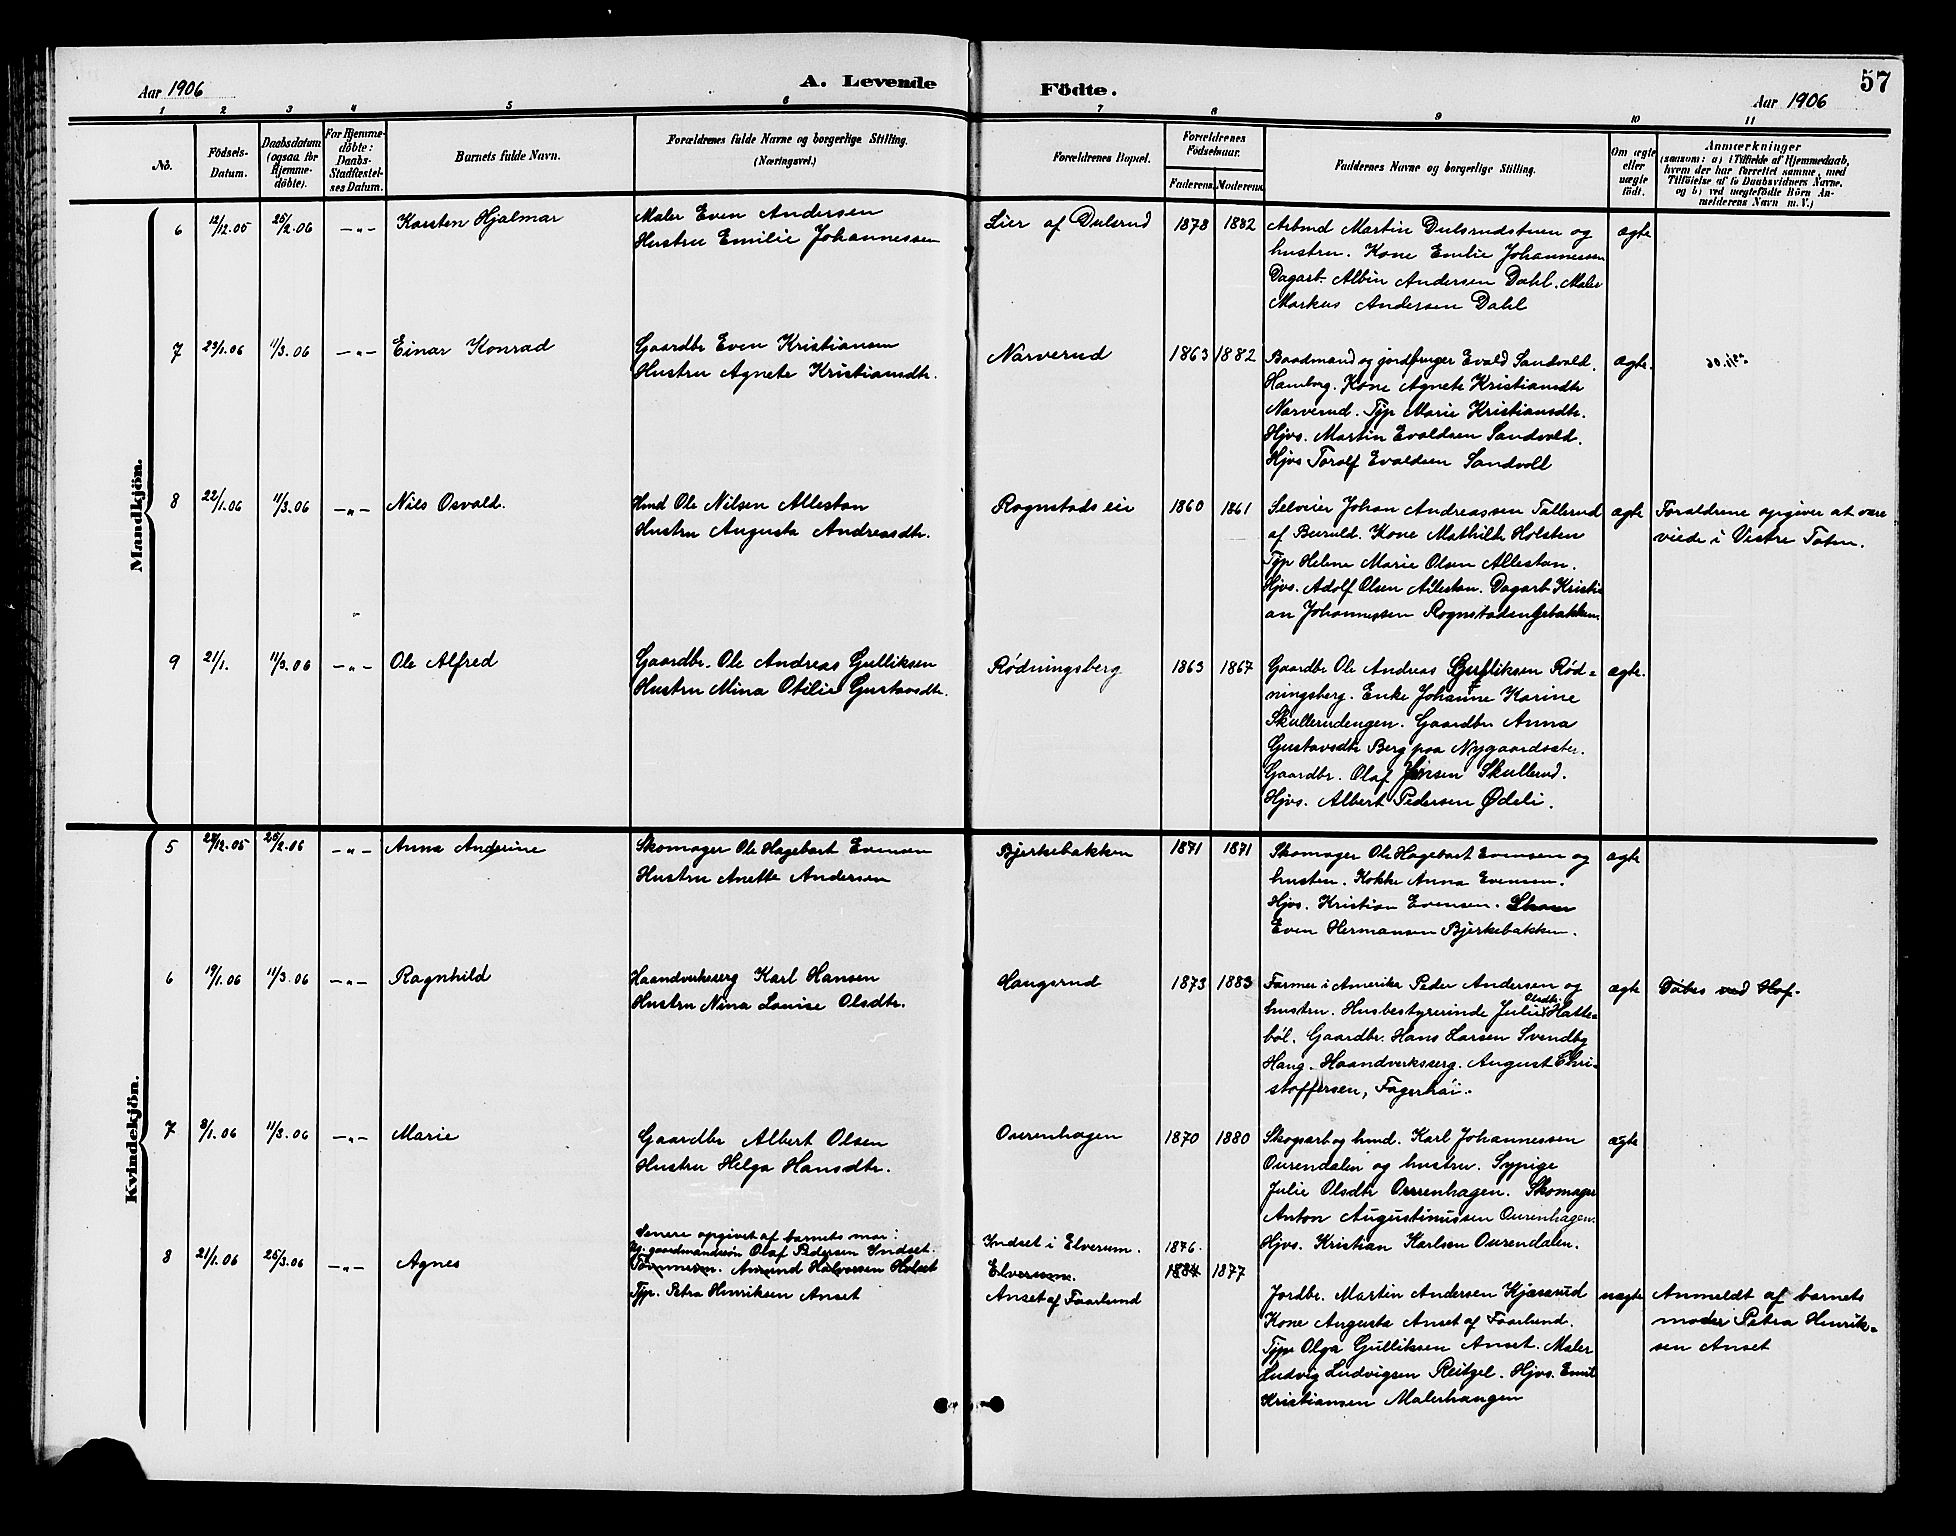 57
Aar 1906
A. Levende
Födte.
Aar 1906
1 2 3 4 5 6 7 8 9 10 11
No.
Födsels-
Datum.
Daabsdatum
(ogsaa for
Hjemme-
döbte).
For Hjemme-
döbte:
Daabs-
Stadfæstel-
ses Datum.
Barnets fulde Navn.
Forældrenes fulde Navne og borgerlige Stilling.
(Næringsvei.)
Forældrenes Bopæl.
Forældrenes
Födselsaar.
Faderens. Moderens.
Faddernes Navne og borgerlige Stilling.
Om ægte
eller
uægte
født.
Anmærkninger
(saasom: a) i Tilfælde af Hjemmedaab,
hvem der har forrettet samme, med
Tilföielse af to Daabsvidners Navne,
og b) ved uægtefödte Börn An-
melderens Navn m. V.)
Mandkjön.
6 12/12.05 25/2.06 -„- Karsten Hjalmar
Maler Even Andersen
Hustru Emilie Johannessen
Lier af Dulsrud 1878 1882
Arbmd Martin Dulsrudstuen og
hustru. Kone Emilie Johannessen
Dagarb. Albin Andersen Dahl. Maler
Markus Andersen Dahl
ægte
7 23/1.06 11/3.06 -„- Einar Konrad
Gaardbr Even Kristiansen
Hustru Agnete Kristiansdtr.
Narverud 1863 1882
Baadmand og jordbruger Evald Sandvold.
Hamborg. Kone Agnete Kristiansdtr
Narverud. Tjp Marie Kristiansdtr.
Hjvs. Martin Evaldsen Sandvold.
Hjvs Toralf Evaldsen Sandvoll
ægte.
8 22/1.06 11/3.06 -„- Nils Osvald.
Hmd Ole Nilsen Allestan
Hustru Augusta Andreasdtr.
Rognstads eie 1860 1861
Selveier Johan Andreassen Tallerud
af Buruld. Kone Mathilde Holsten
Tjp Helene Marie Olsen Allestan.
Hjvs. Adolf Olsen Allestan. Dagarb Kristi-
an Johannessen Rognstadengebakken.
ægte
Forældrene opgiver at være
viede i Vestre Toten.
9 21/1. 11/3.06 -„- Ole Alfred
Gaardbr. Ole Andreas Gulliksen
Hustru Mina Otilie Gustavsdtr.
Rødningsberg 1863 1867
Gaardbr Ole Andreas Gulliksen Rød-
ningsberg. Enke Johanne Karine
Skullerudengen. Gaardbr Anna
Gustavsdtr Berg paa Nygaardsæter.
Gaardbr. Olaf Jensen Skullerud.
Hjvs. Albert Pedersen Ødeli.
ægte.
Kvindekjön.
5 27/12.05 25/2.06 -„- Anna Anderine
Skomager Ole Hagebart Evensen
Hustru Anette Andersen
Bjerkebakken 1871 1871
Skomager Ole Hagebart Evensen og
hustru. Kokke Anna Evensen.
Hjvs. Kristian Evensen.
Even Hermansen Bjerkebakken.
ægte
6 19/1.06 11/3.06 -„- Ragnhild
Haandverkeserg Karl Hansen
Hustru Nina Louise Olsdtr.
Haugerud 1873 1883
Farmer i Amerika Peder Andersen og
hustru. Husbestyrerinde Julie Olsdtr. Hatle-
bøl. Gaardbr. Hans Larsen Svendby
Haug. Haandverksserg. August Chri-
stoffersen, Fagerhøi.
ægte
Døbes ved Hof.
7 8/1.06 11/3.06 -„- Marie
Gaardbr Albert Olsen
Hustru Helga Hansdtr.
Ourenhagen 1870 1880
Skogsarb og hmd. Karl Johannessen
Ourendalen og hustru. Sypige
Julie Olsdtr Ourenhagen. Skomager
Anton Augustinussen Ourenhagen.
Hjvs. Kristian Karlsen Ourendalen.
ægte
8 21/1.06 25/3.06 -„- Agnes
Senere opgivet af barnets mor:
gaardmandssøn Olaf Pedersen Indset.
Tømmerm. Amund Halvorsen Holset
Tjp. Petra Henriksen Anset
Indset i Elverum. 1876.
Elverum. 1884 1877
Anset af Faarlund
Jordbr. Martin Andersen Kjæsrud
Kone Augusta Anset af Faarlund.
Tjp Olga Gulliksen Anset. Maler
Ludvig Ludvigsen Reitzel. Hjvs. Emil
Kristiansen Malerhaugen
uægte
Anmeldt af barnets
moder Petra Henrik-
sen Anset